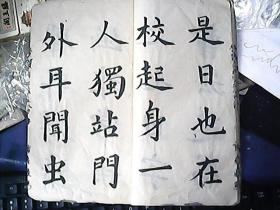 是日也在
校起身一
人獨站門
外耳聞虫